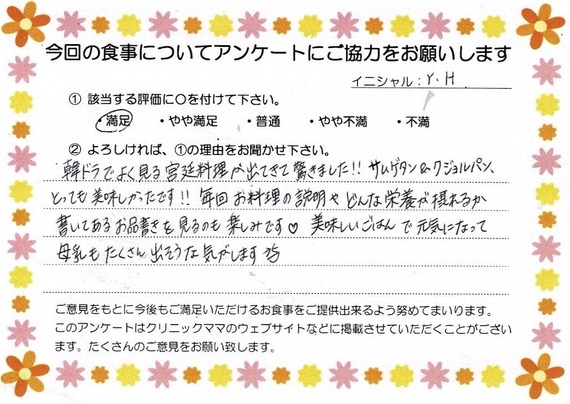 今回の食事についてアンケートにご協力をお願いします
イニシャル：Y.H
① 該当する評価に〇を付けて下さい。
・満足 ・やや満足 ・普通 ・やや不満 ・不満
② よろしければ、①の理由をお聞かせ下さい。
韓ドラでよく見る宮廷料理が出てきて驚きました!! サムゲタン&クジョルパン、
とっても美味しかったです!! 毎回お料理の説明やどんな栄養が摂れるか
書いてあるお品書きを見るのも楽しみです♡ 美味しいごはんで元気になって
母乳もたくさん出そうな気がします
ご意見をもとに今後もご満足いただけるお食事をご提供出来るよう努めてまいります。
このアンケートはクリニックママのウェブサイトなどに掲載させていただくことがござい
ます。たくさんのご意見をお願い致します。